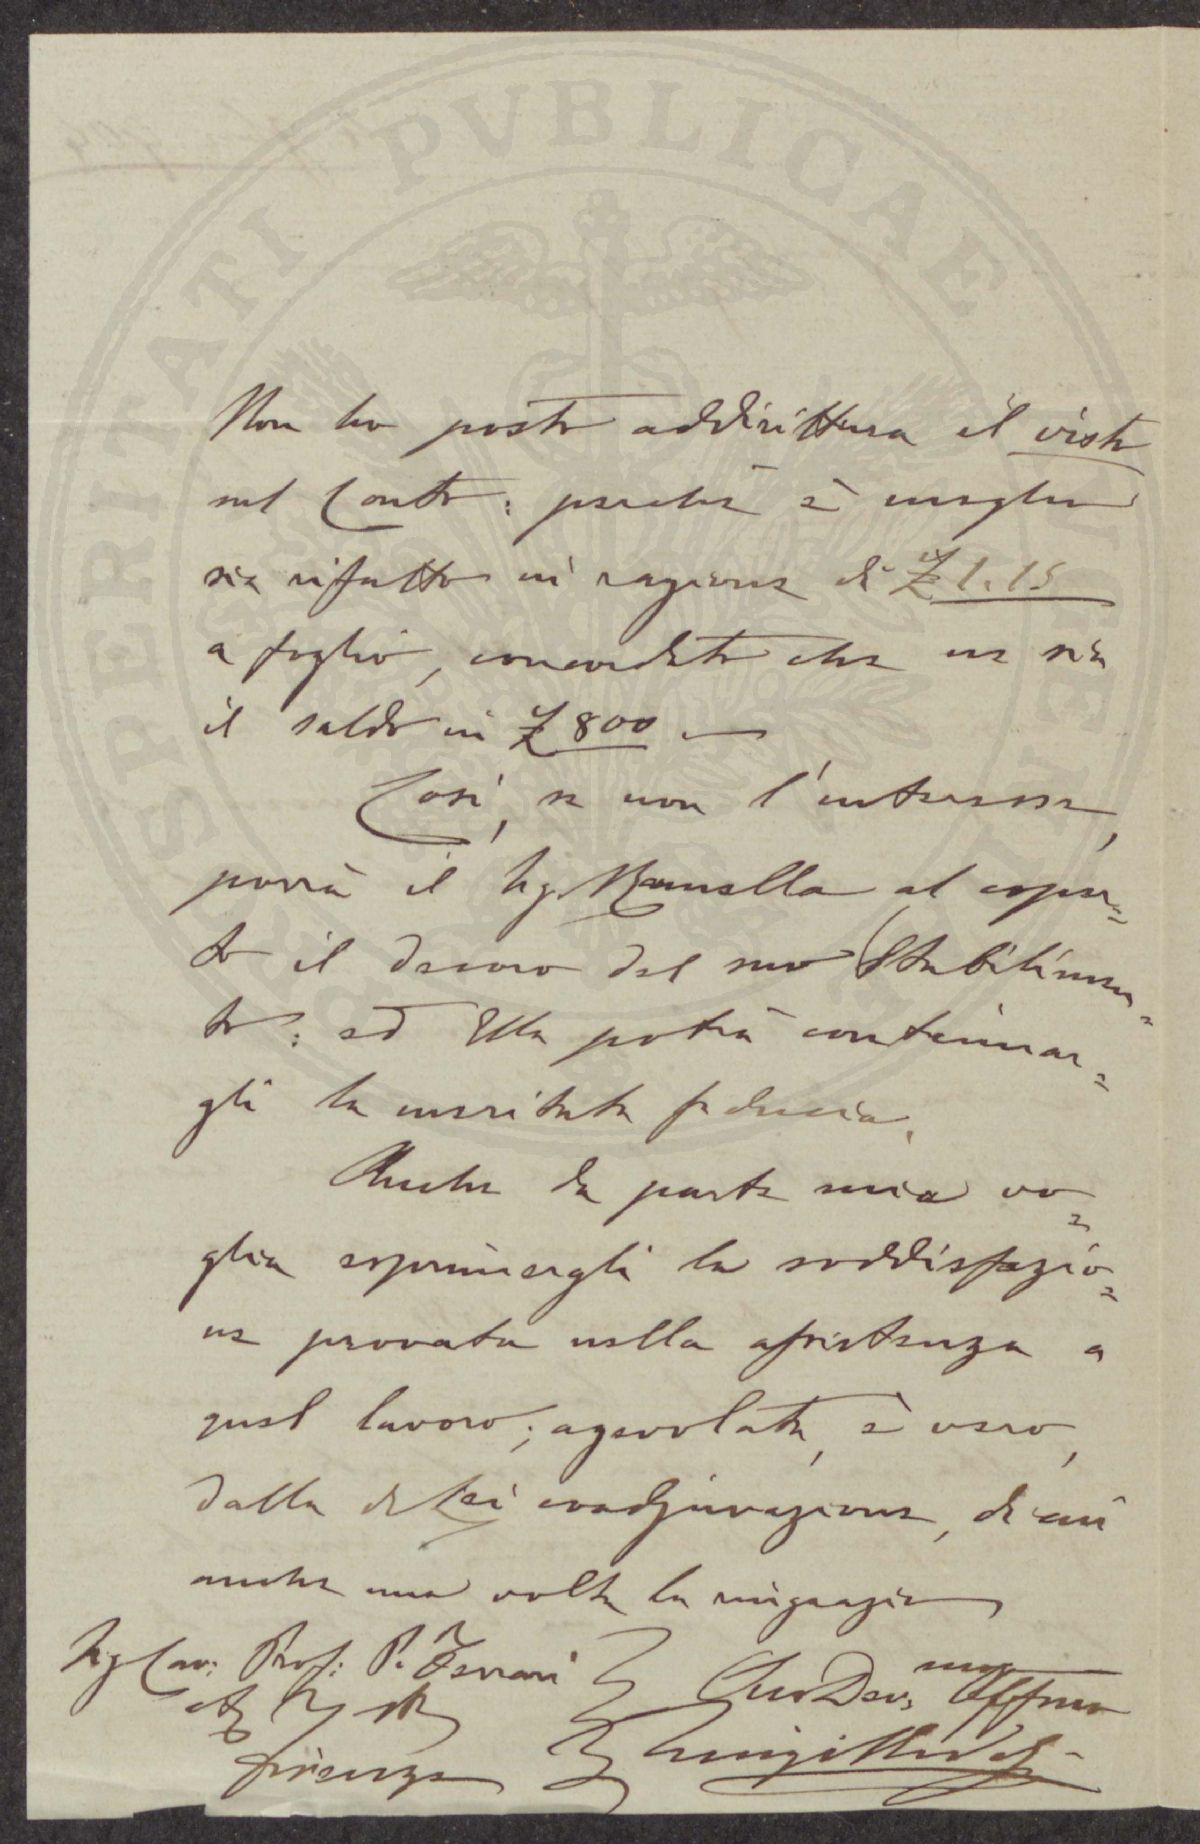 PROSPERITATI PVBLICAE
Non ho posto addirittura il visto
sul Conto: perchè è meglio
sia rifatto in ragione di £ 1.15
a foglio, concordato che ne sia
il saldo in £ 800 —
Così, se non l'interesse,
porrà il Sig. Ramella al coper=
to il decoro del suo Stabilimen=
to: ed Ella potrà continuar=
gli la meritata fiducia.
Anche da parte mia vo=
glia esprimergli la soddisfazio=
ne provata nella assistenza a
quel lavoro; agevolata, è vero,
dalla di Lei coadjuvazione, di cui
anche una volta la ringrazio
Sig Cav: Prof: P. Ferrari
Suo Dev. mo Affmo
Firenze
Luigi